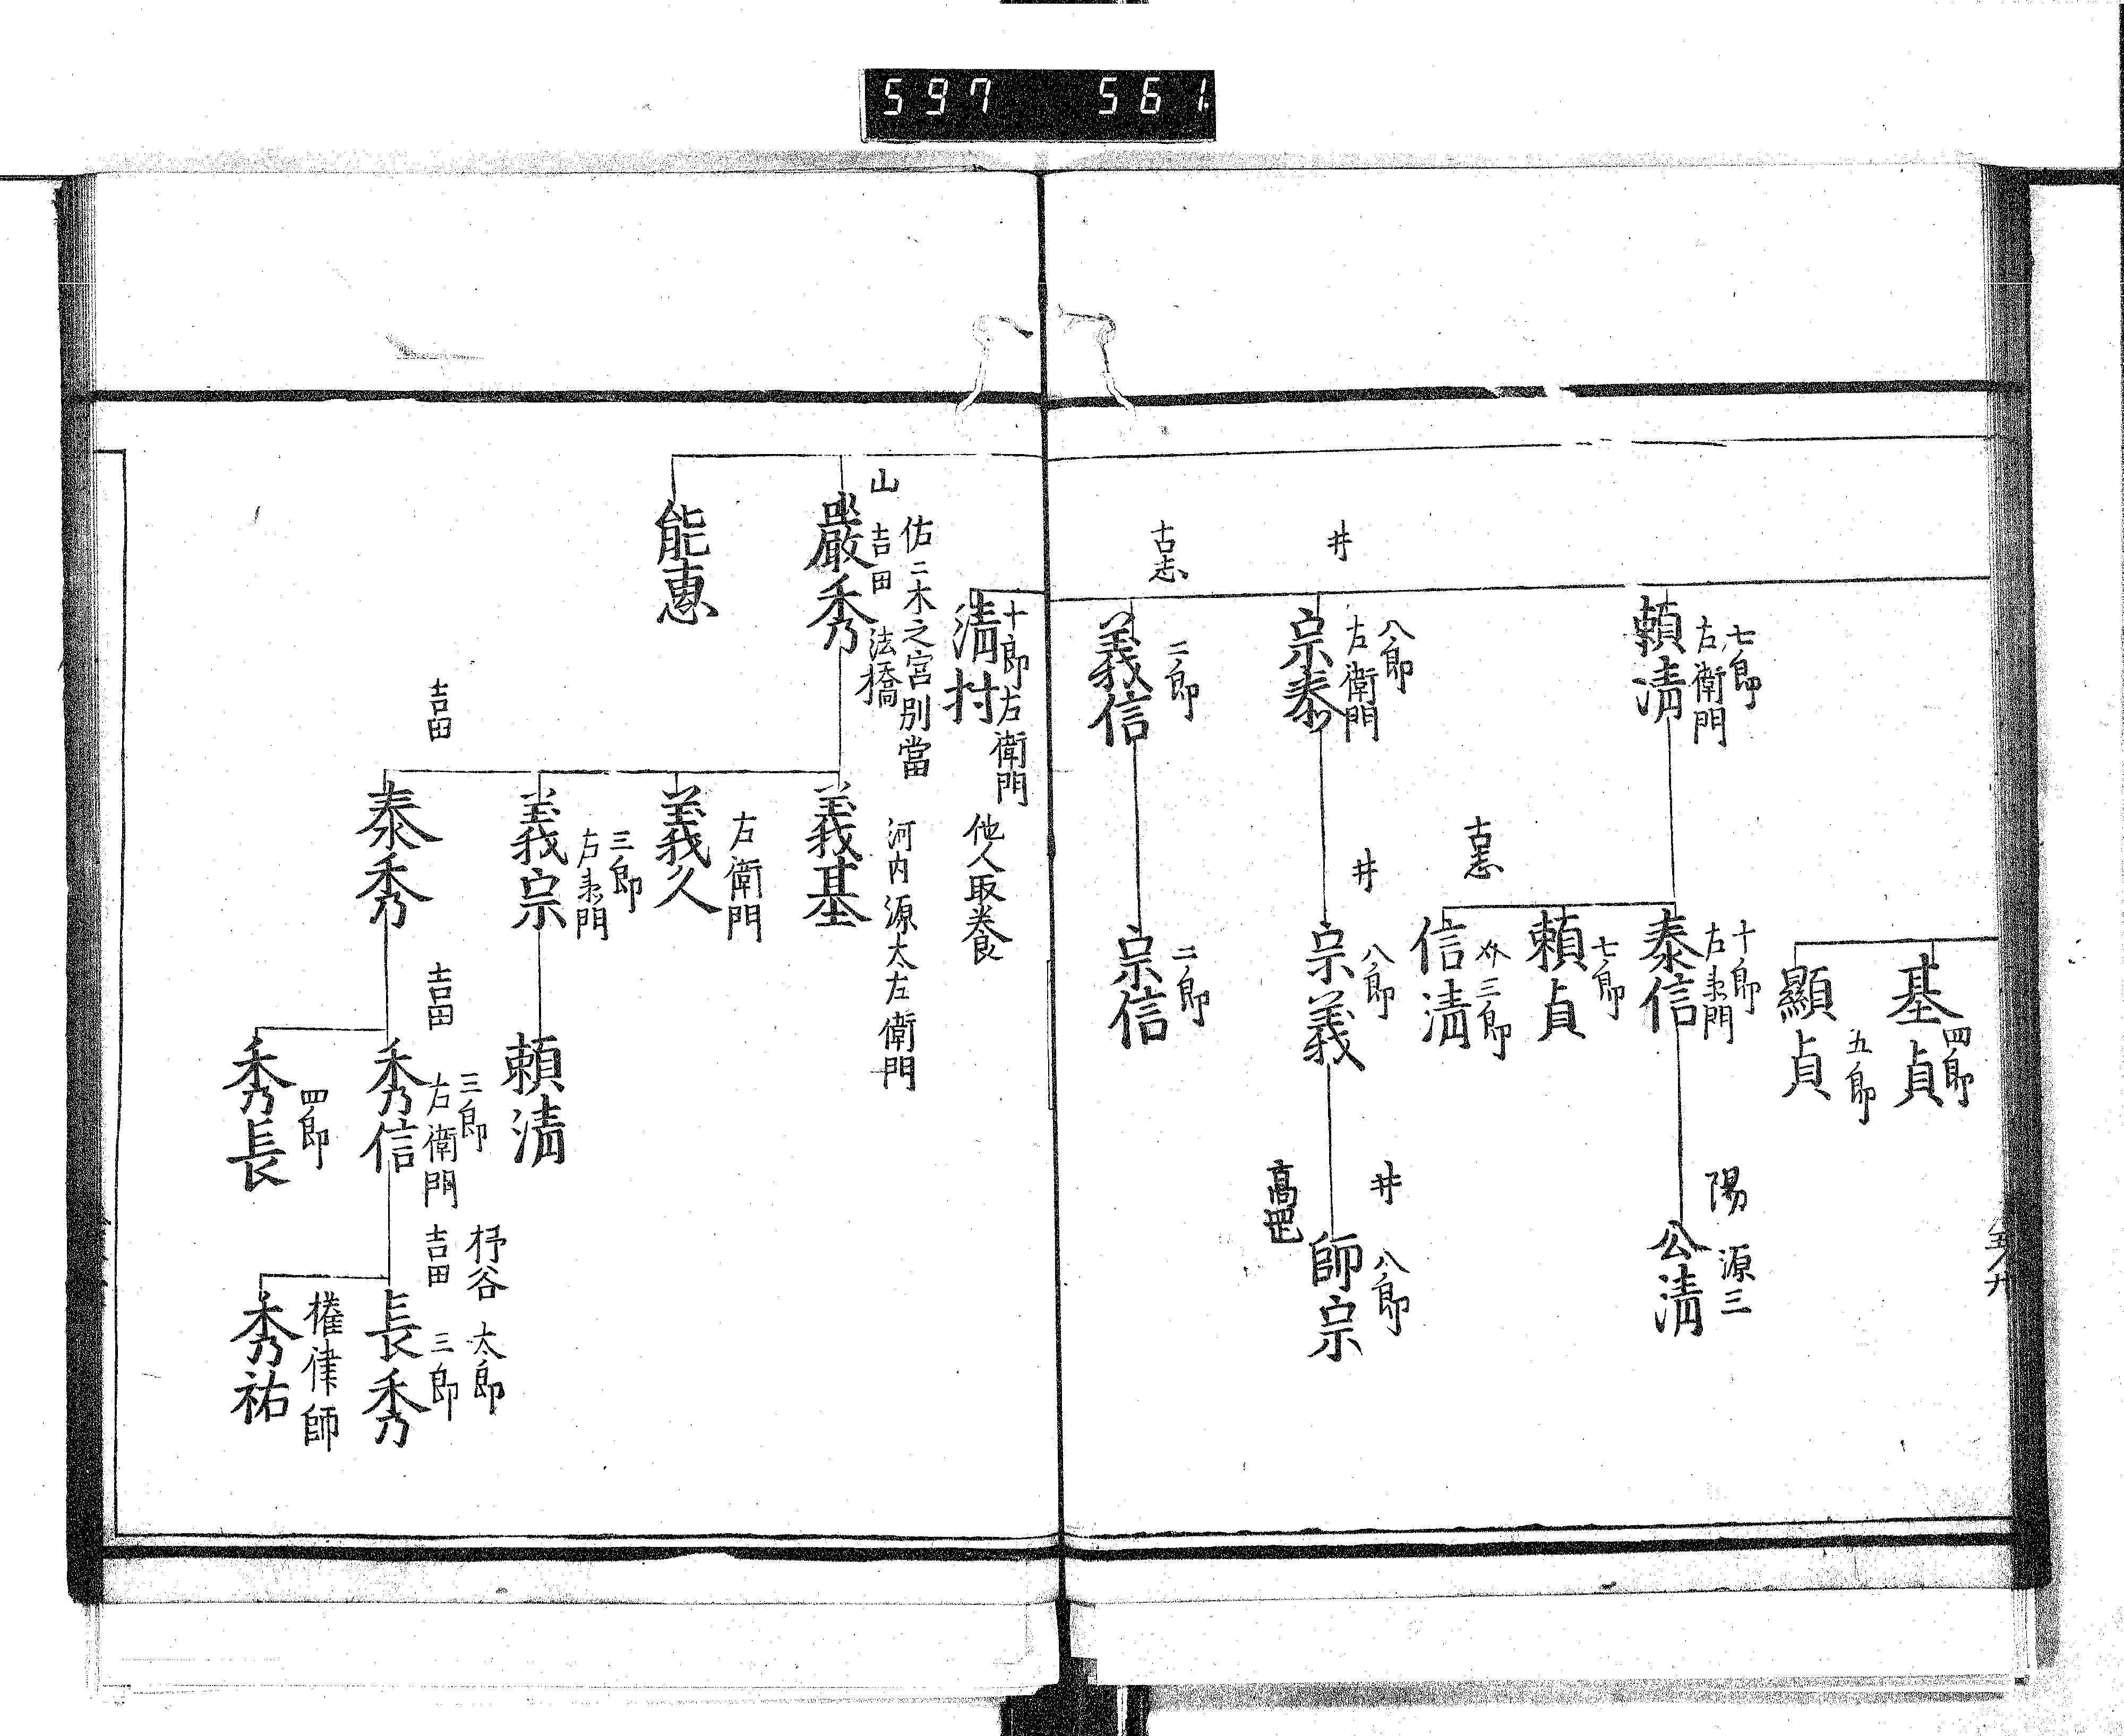 597 561
基貞
四郎
顯貞
五郎
七郎
左衛門
頼清
十郎
左衛門
泰信
陽
源三
公清
頼貞
七郎
古志
信清
三郎
井
八郎
左衛門
宗泰
井
八郎
宗義
井
八郎
高岡
師宗
古志
二郎
義信
二郎
宗信
十郎左衛門
他人取養
清村
佑二木之宮別當
山
吉田
法橋
嚴秀
河内源太左衛門
義基
能恵
左衛門
義久
三郎
左衛門
義宗
頼清
吉田
泰秀
吉田
三郎
左衛門
秀信
四郎
秀長
杼谷
太郎
吉田
三郎
長秀
権律師
秀祐